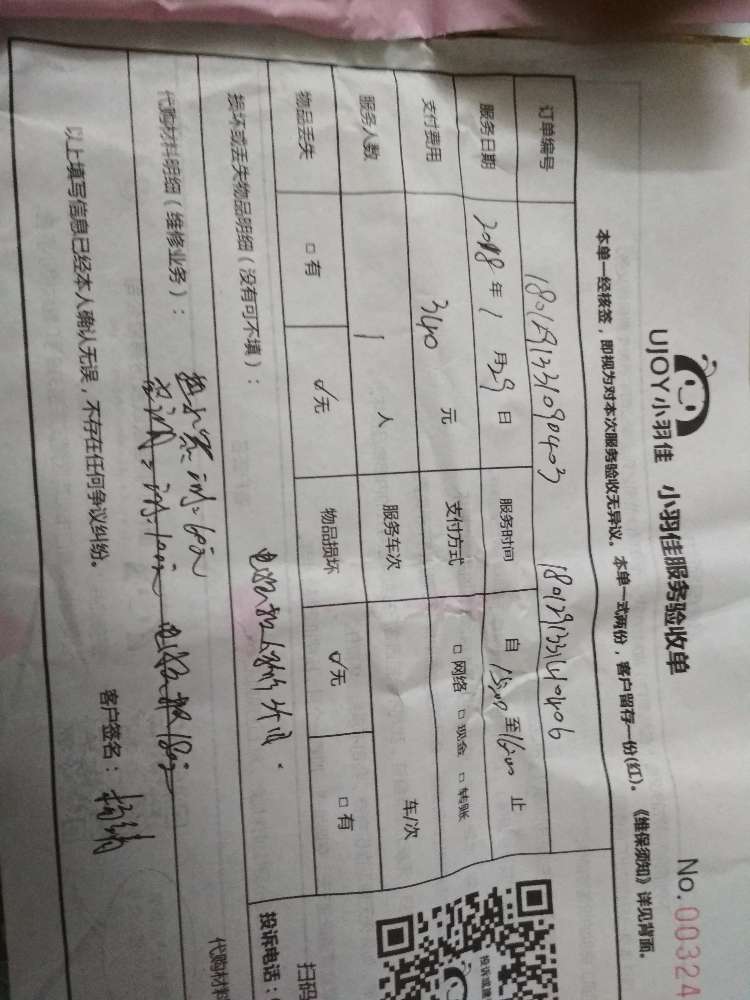 No.00324
UJOY小羽佳 小羽佳服务验收单
本单一经核签，即视为对本次服务验收无异议。本单一式两份，客户留存一份(红)。《维保须知》详见背面。
订单编号 1801291331090403 1801291331410406
服务日期 2018年1月29日 服务时间 自15:00至16:00止
支付费用 340元 支付方式 □网络 □现金 □转账
服务人数 1人 服务车次 车/次
物品丢失 □有 √无 物品损坏 √无 □有
损坏或丢失物品明细（没有可不填）：
代购材料明细（维修业务）：
以上填写信息已经本人确认无误，不存在任何争议纠纷。
客户签名：
投诉电话：
扫码
代购材料